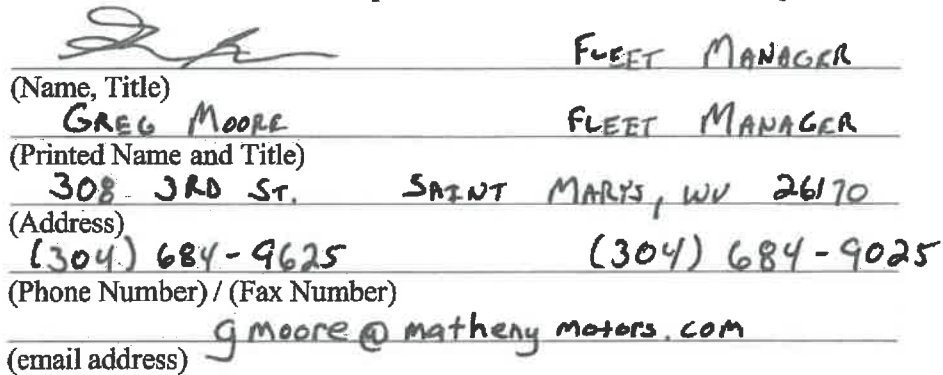 FLEET MANAGER
(Name, Title)
GREG MOORE FLEET MANAGER
(Printed Name and Title)
308 3RD ST. SAINT MARYS, WV 26170
(Address)
(304) 684-9625 (304) 684-9025
(Phone Number) / (Fax Number)
gmoore@mathenymotors.com
(email address)